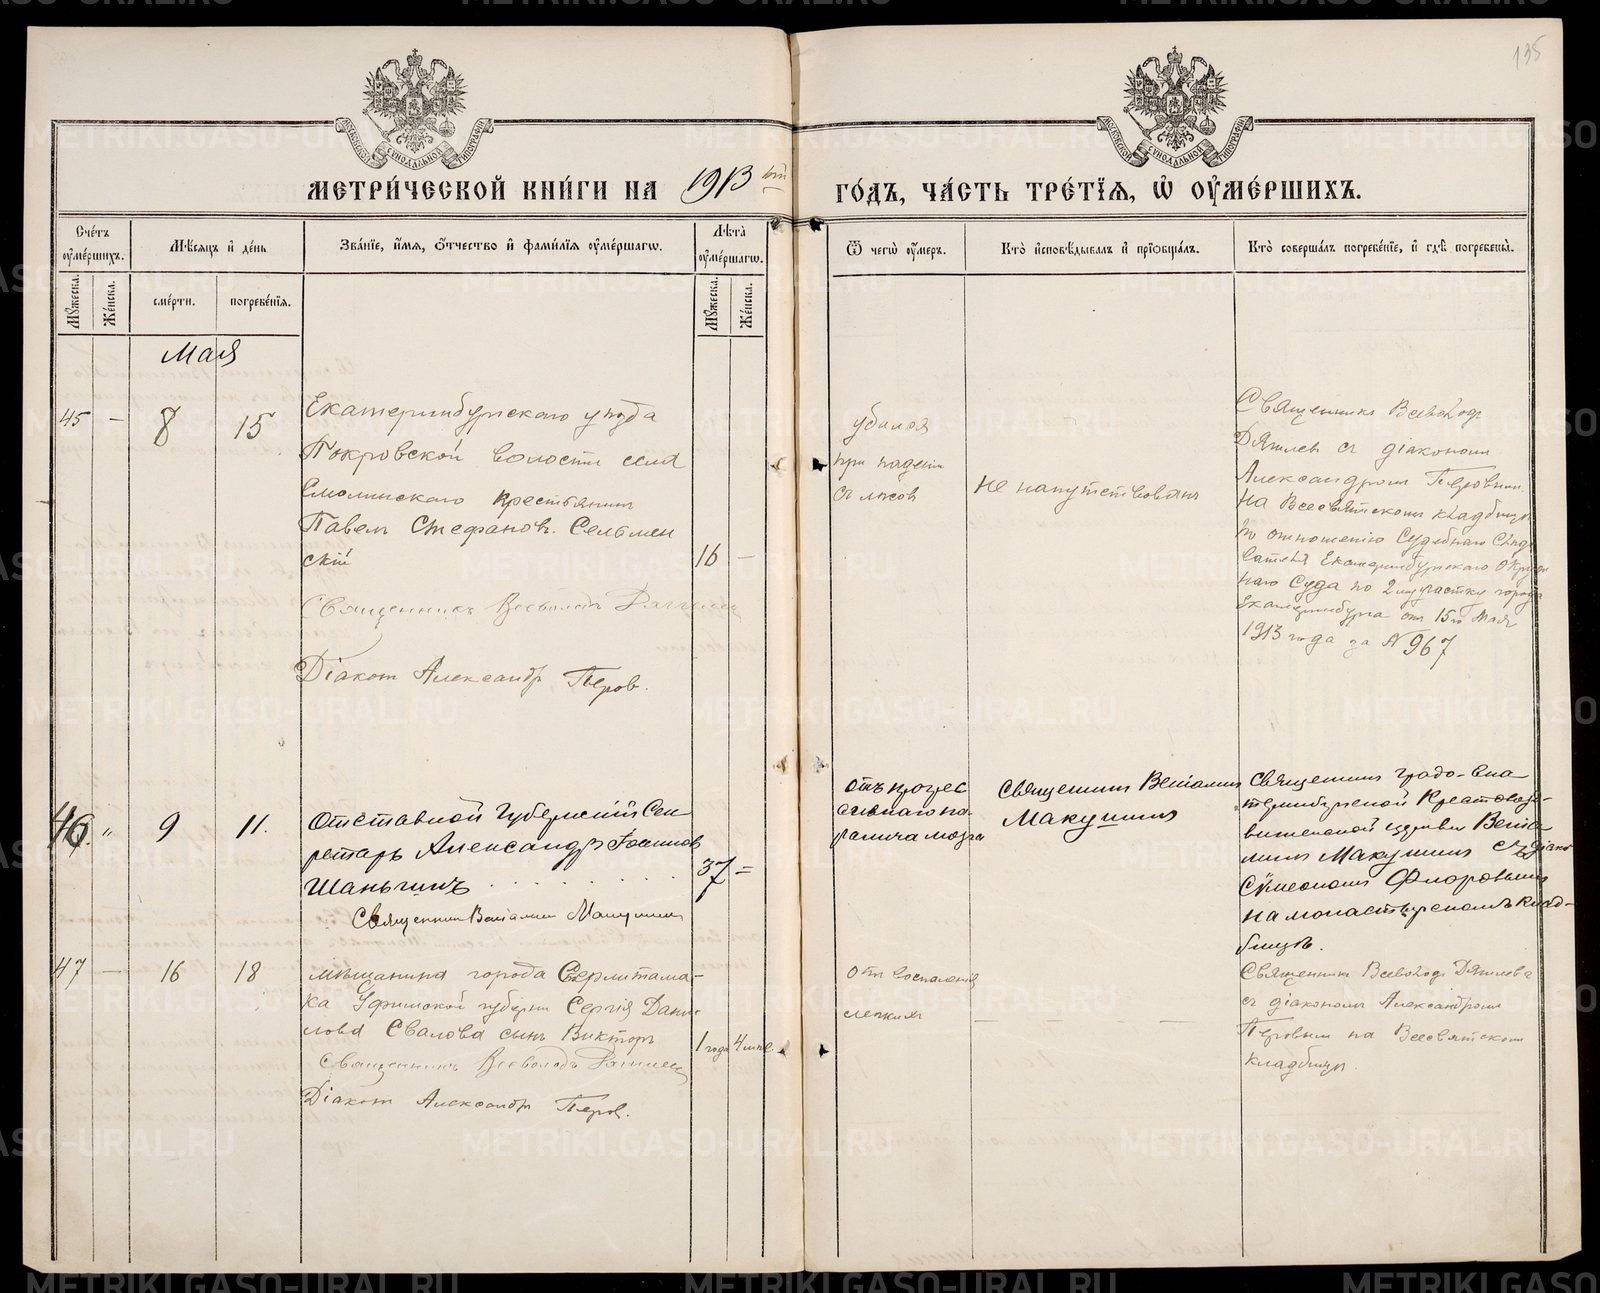 135
МЕТРИ́ЧЕСКОЙ КНИ́ГИ НА 1913 ый
ГО́ДЪ, ЧА́СТЬ ТРЕ́ТЇѦ, Ѡ҆ ОУ҆МЕ́РШИХЪ.
Сче́тъ оу҆ме́ршихъ.
Мѣ́сяцъ и҆ де́нь
Зва́нїе, и҆́мя, ѻ҆́тчество и҆ фами́лїя оу҆ме́ршагѡ.
Лѣ́та оу҆ме́ршагѡ.
Ѿ чегѡ̀ оу҆́меръ.
Кто̀ и҆сповѣ́дывалъ и҆ прїѡбща́лъ.
Кто̀ соверша́лъ погребе́нїе, и҆ гдѣ̀ погребены̀.
Му́жеска.
Же́нска.
сме́рти.
погребе́нїя.
Му́жеска.
Же́нска.
Мая
45 — 8 15
Екатеринбургскаго уѣзда
Покровской волости села
Смолинскаго крестьянинъ
Павелъ Стефановъ Сельмен
скій
16 —
Священникъ Всеволодъ
Діаконъ Александръ Перов.
убился
при паденіи
съ лѣсовъ
не напутствованъ
Священникъ Всеволодъ
съ діакономъ
Александромъ Перовымъ
на Всесвятскомъ кладбищѣ
по отношенію Судебнаго Слѣдо
вателя Екатеринбургскаго Окруж
наго Суда по 2му участку города
Екатеринбурга отъ 15го Мая
1913 года за № 967
46. " 9 11.
Отставной Губернскій Сек
ретарь Александръ Іоаннов
Шаньгинъ
37 =
Священникъ Веніаминъ Макушинъ
отъ прогрес
сивнаго па-
ралича мозга
Священникъ Веніаминъ
Макушинъ
Священникъ градо-Ека
теринбургской Крестовоз-
движенской церкви Венiа
минъ Макушинъ съ діако
Сѵмеономъ Флоровымъ
на монастырскомъ клад-
бищѣ.
47 — 16 18
мѣщанина города Стерлитама-
ка Уфимской губерніи Сергія Дани
лова Свалова сынъ Викторъ
1 года 4 мѣс.
Священникъ Всеволодъ
Діаконъ Александръ Перов.
отъ воспаленія
легкихъ
— — —
Священникъ Всеволодъ
съ діакономъ Александромъ
Перовымъ на Всесвятскомъ
кладбищѣ.
METRIKI.GASO-URAL.RU